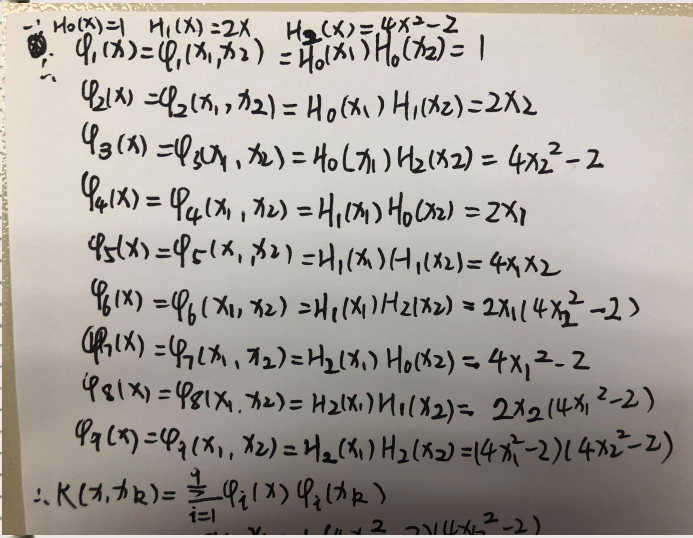 ∵ H₀(x)=1 H₁(x)=2x H₂(x)=4x²-2
∴ φ₁(x)=φ₁(x₁,x₂)=H₀(x₁)H₀(x₂)=1
φ₂(x)=φ₂(x₁,x₂)=H₀(x₁)H₁(x₂)=2x₂
φ₃(x)=φ₃(x₁,x₂)=H₀(x₁)H₂(x₂)=4x₂²-2
φ₄(x)=φ₄(x₁,x₂)=H₁(x₁)H₀(x₂)=2x₁
φ₅(x)=φ₅(x₁,x₂)=H₁(x₁)H₁(x₂)=4x₁x₂
φ₆(x)=φ₆(x₁,x₂)=H₁(x₁)H₂(x₂)=2x₁(4x₂²-2)
φ₇(x)=φ₇(x₁,x₂)=H₂(x₁)H₀(x₂)=4x₁²-2
φ₈(x)=φ₈(x₁,x₂)=H₂(x₁)H₁(x₂)=2x₂(4x₁²-2)
φ₉(x)=φ₉(x₁,x₂)=H₂(x₁)H₂(x₂)=(4x₁²-2)(4x₂²-2)
∴K(x,xₖ)=∑_{i=1}^{9}φᵢ(x)φᵢ(xₖ)